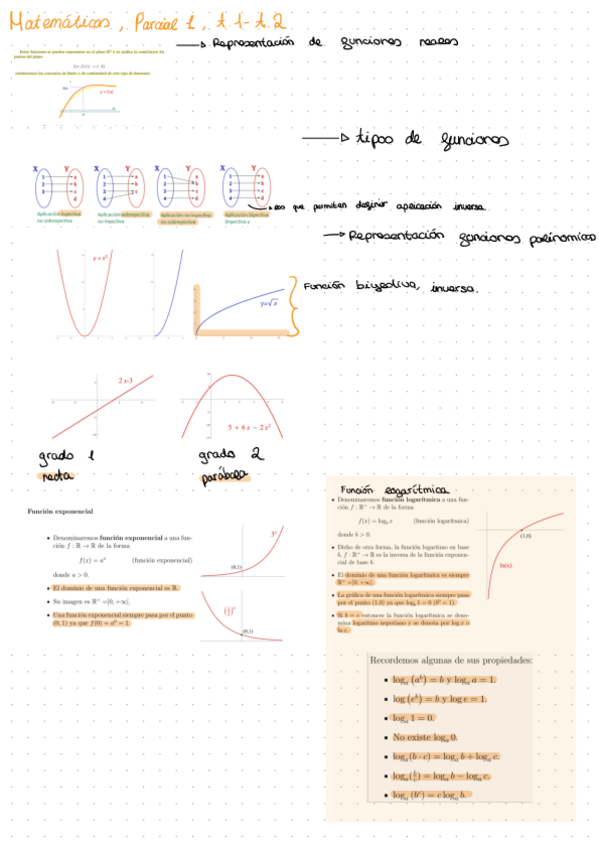 Matemáticas, Parcial 1, t.1-t.2
Representación de funciones reales
Estas funciones se pueden representar en el plano R² y su gráfica la constituyen los
puntos del plano
y = f(x)
tipos de funciones
X Y X Y X Y X Y
1 a 1 a 1 a 1 a
2 b 2 b 2 b 2 b
3 c 3 c 3 c 3 c
d 4 4 d 4 d
Aplicación inyectiva
no sobreyectiva
Aplicación sobreyectiva
no inyectiva
Aplicación no inyectiva
no sobreyectiva
Aplicación biyectiva
inyectiva y
que permiten definir aplicación inversa.
Representación funciones polinómica
y = x²
y=√x
Función biyectiva, inversa.
2 x-3
5 + 6 x − 2 x²
grado 1
recta
grado 2
parábola
Función exponencial
Denominaremos función exponencial a una fun-
ción f : ℝ → ℝ de la forma
f(x) = aˣ (función exponencial)
donde a > 0.
El dominio de una función exponencial es ℝ.
Su imagen es ℝ⁺ =]0, +∞[.
Una función exponencial siempre pasa por el punto
(0, 1) ya que f(0) = a⁰ = 1.
3ˣ
(0,1)
(0,1)
Función logarítmica
Denominaremos función logarítmica a una fun-
ción f : ℝ⁺ → ℝ de la forma
f(x) = log_b x (función logarítmica)
donde b > 0.
Dicho de otra forma, la función logaritmo en base
b, f : ℝ⁺ → ℝ es la inversa de la función exponen-
cial de base b.
El dominio de una función logarítmica es siempre
ℝ⁺ =]0, +∞[.
La gráfica de una función logarítmica siempre pasa
por el punto (1, 0) ya que log_b 1 = 0 (b⁰ = 1).
Si b = e entonces la función logarítmica se deno-
mina logaritmo neperiano y se denota por log x o
ln x.
(1,0)
ln(x)
Recordemos algunas de sus propiedades:
log_a (aᵇ) = b y log_a a = 1.
log (eᵇ) = b y log e = 1.
log_a 1 = 0.
No existe log_a 0.
log_a(b · c) = log_a b + log_a c.
log_a(b/c) = log_a b − log_a c.
log_a (bᶜ) = c log_a b.